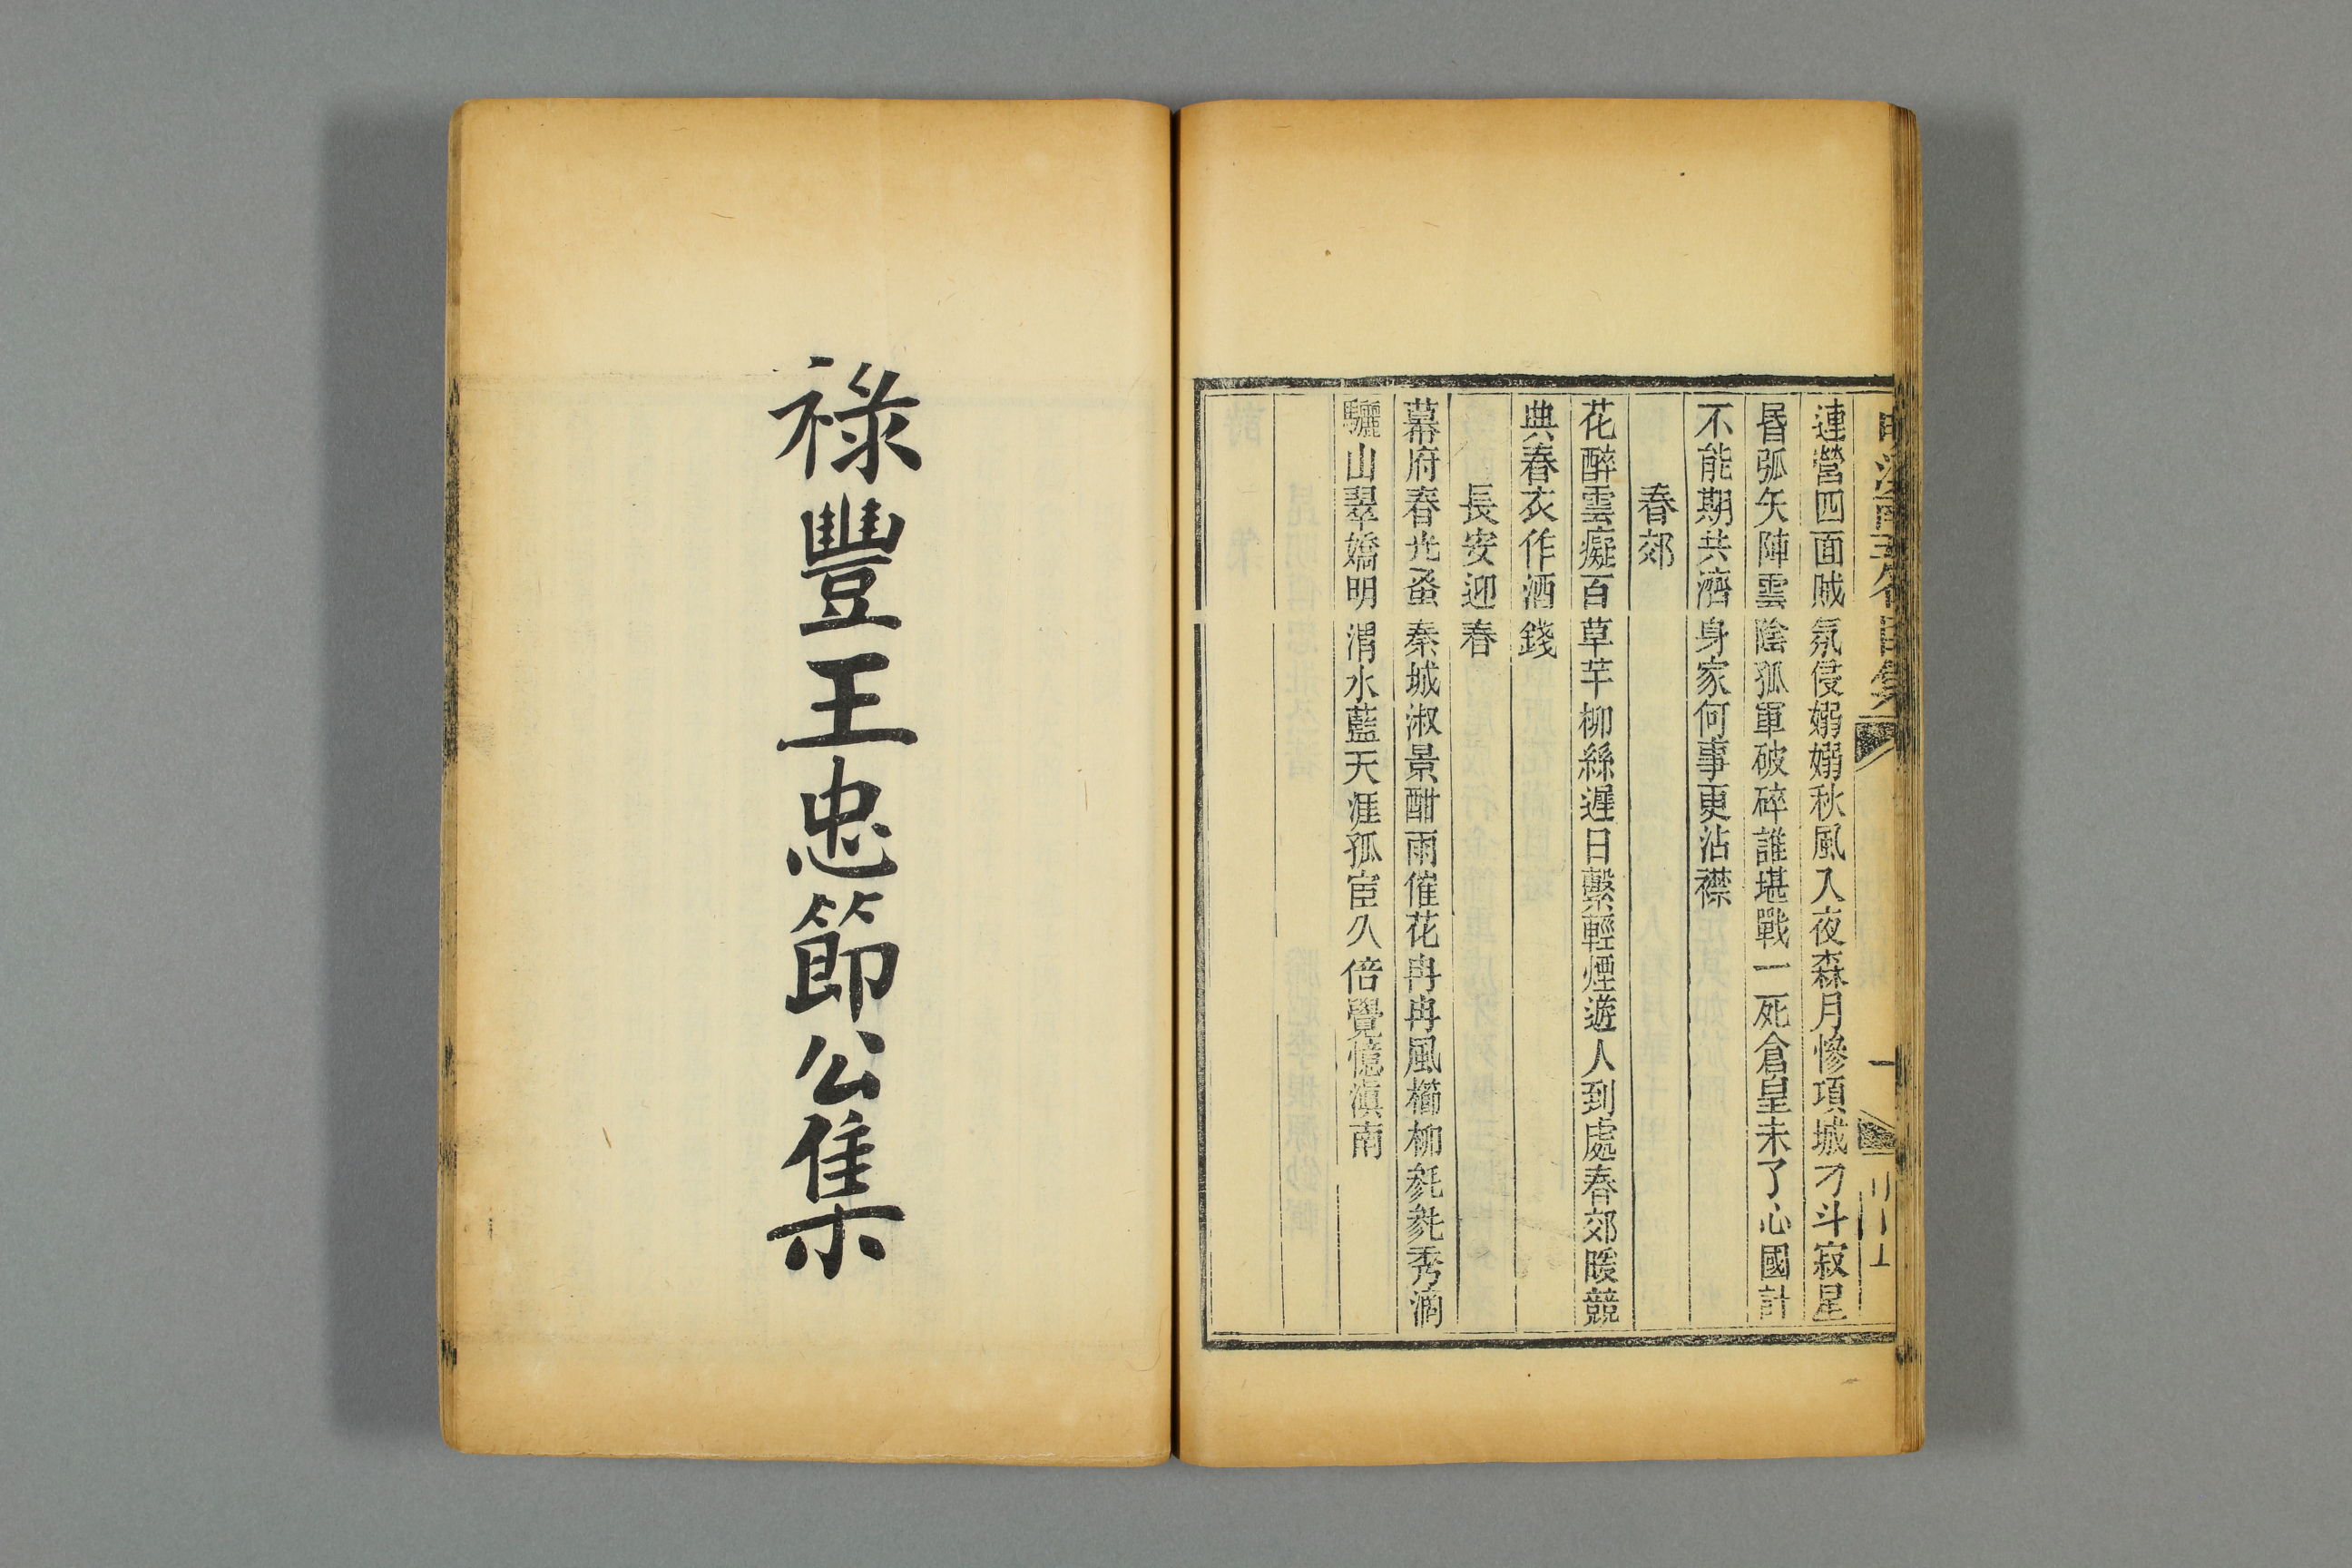 連營四面賊氛侵嫋嫋秋風入夜森月慘項城刁斗寂星
昏弧矢陣雲陰孤軍破碎誰堪戰一死倉皇未了心國計
不能期共濟身家何事更沾襟
春郊
花醉雲癡百草芊柳絲遲日繫輕煙遊人到處春郊暖競
典春衣作酒錢
長安迎春
幕府春光蚤秦城淑景酣雨催花冉冉風櫛柳毿毿秀滴
驪山翠嬌明渭水藍天涯孤宦久倍覺憶滇南
祿豐王忠節公集